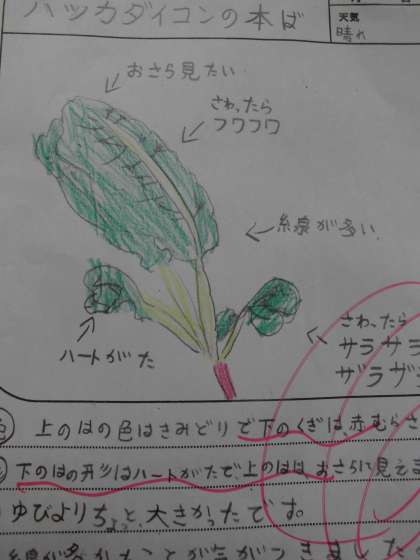 ハツカダイコンの本ば
天気
晴れ
おさら見たい
さわったら
フワフワ
線が多い
ハートがた
さわったら
サラサラ
ザラザ
上のはの色はきみどりで下のくぎは、赤むらさ
下のはの形はハートがたで上のはは おさらに見えま
ゆびよりちょっと、大きかったです。